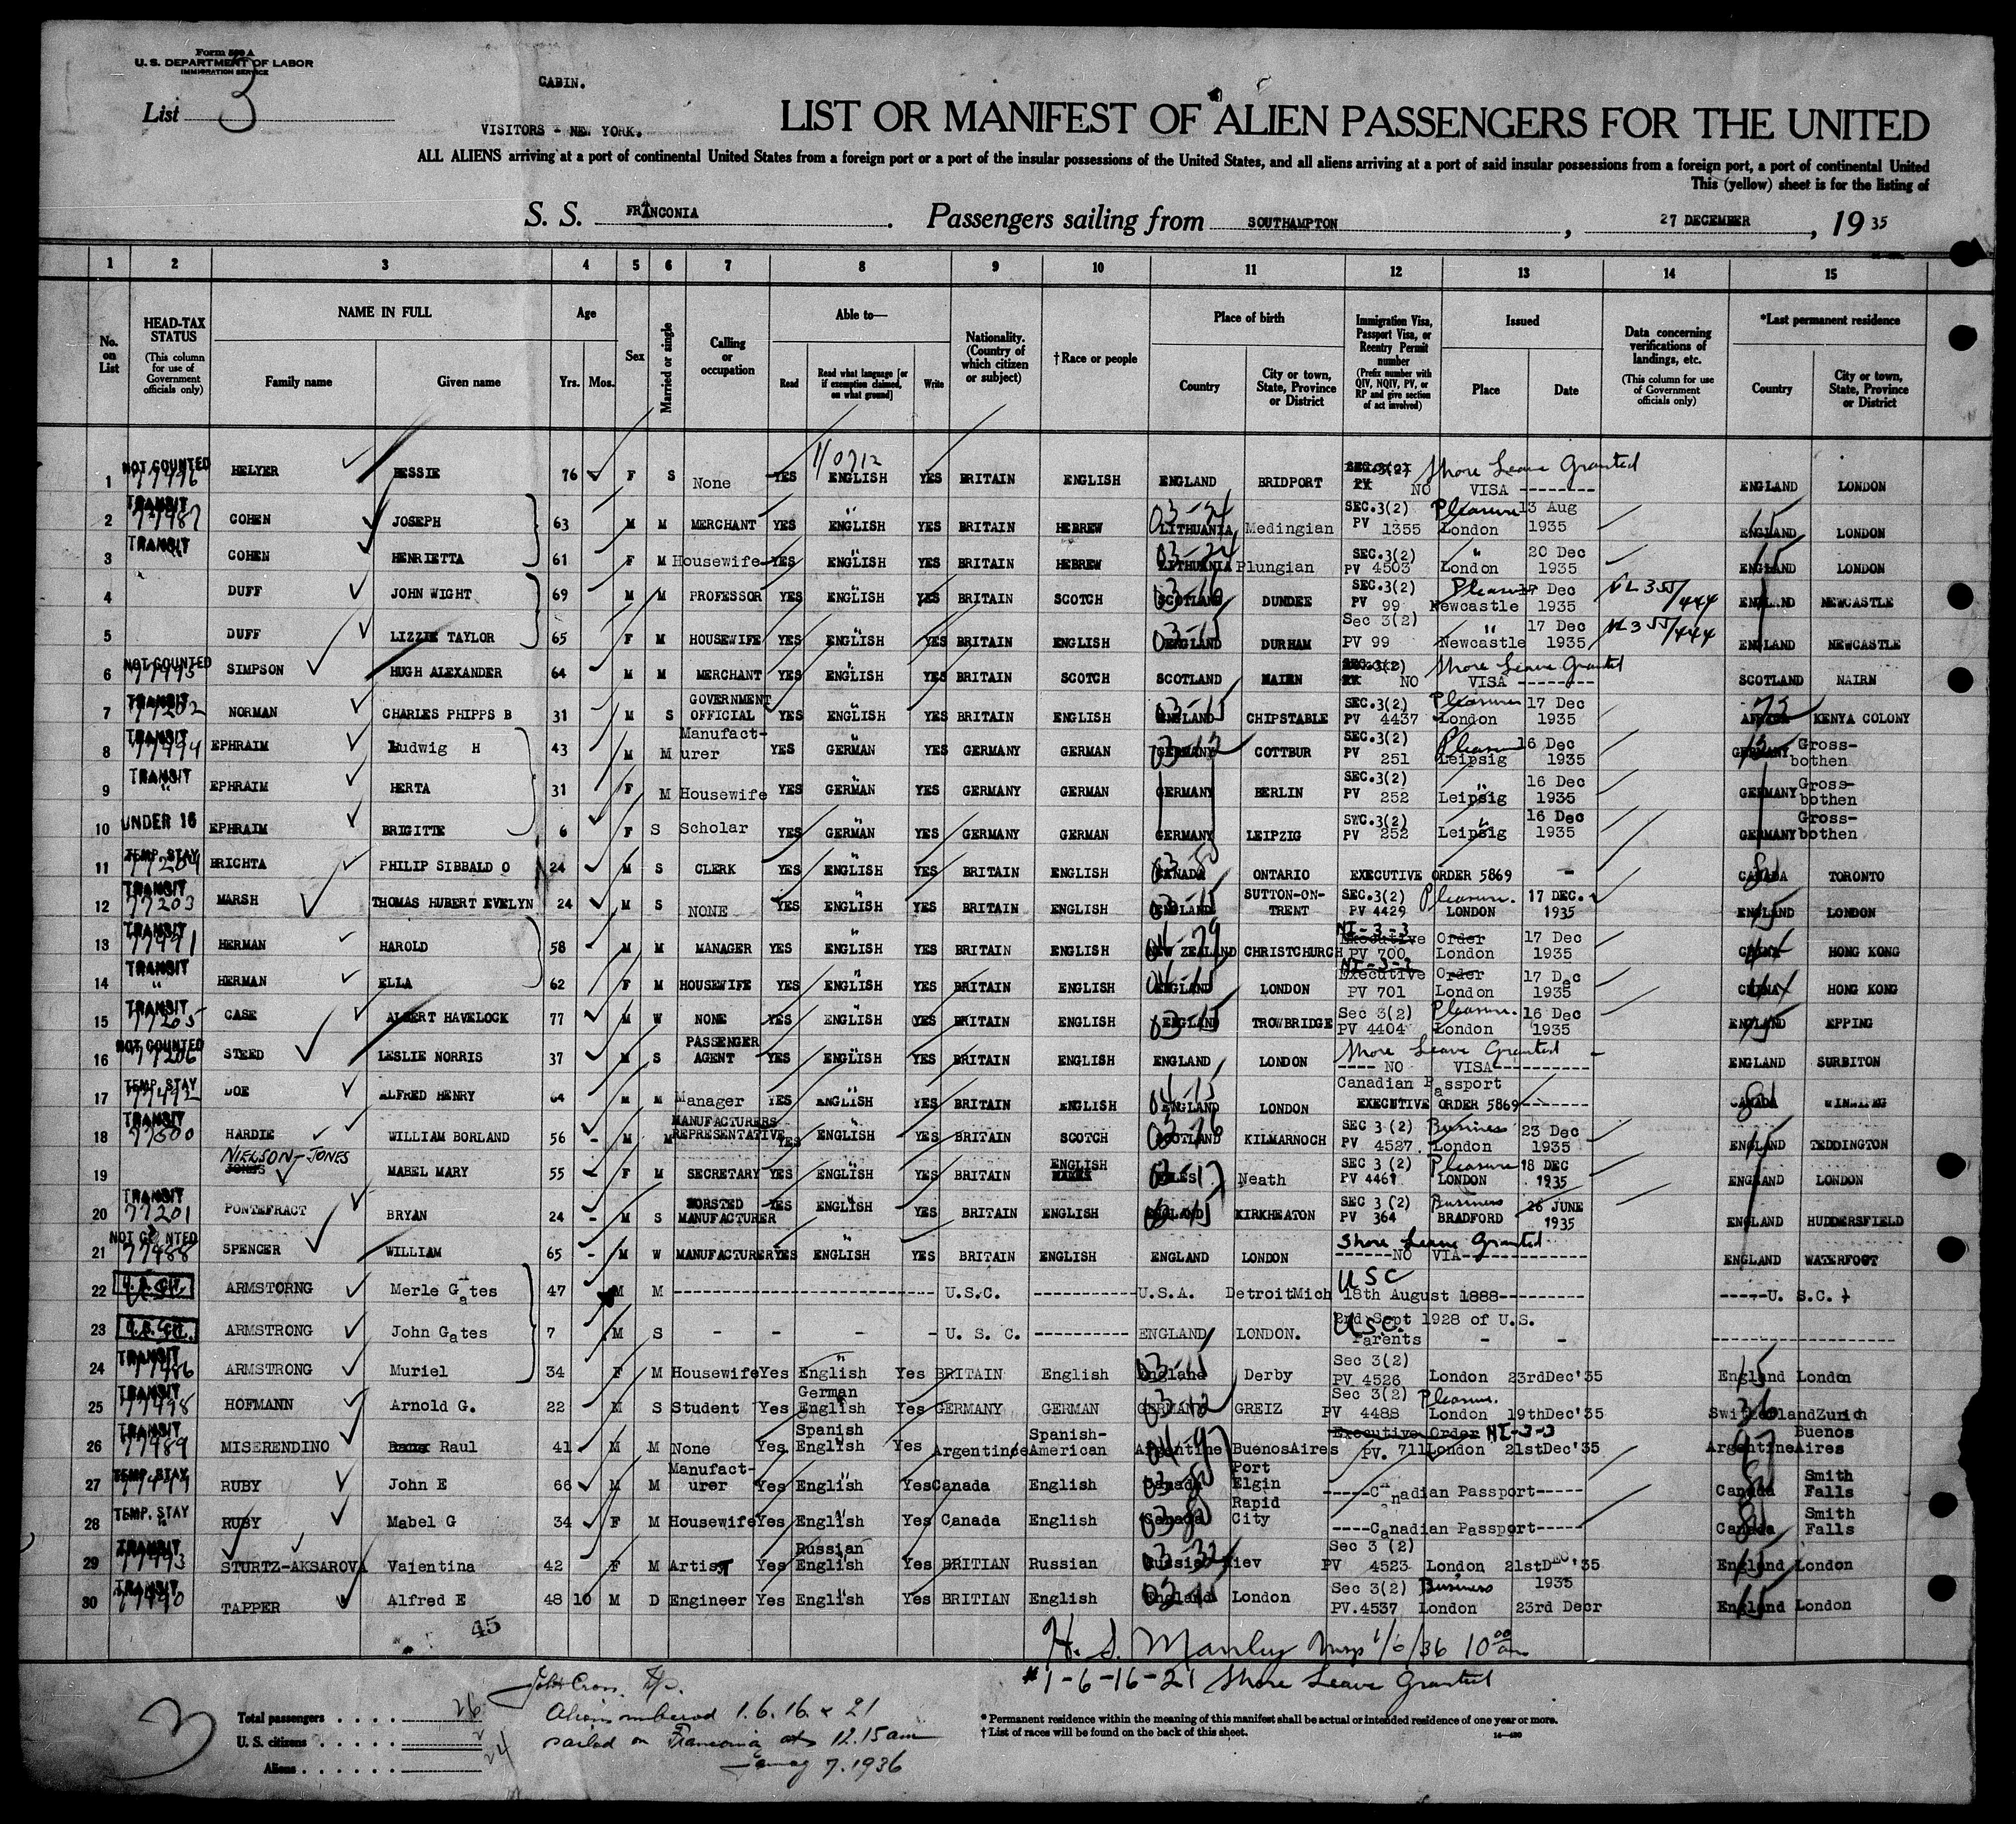 Form 500 A
U. S. DEPARTMENT OF LABOR
IMMIGRATION SERVICE
List 3
CABIN.
VISITORS - NEW YORK.
LIST OR MANIFEST OF ALIEN PASSENGERS FOR THE UNITED
ALL ALIENS arriving at a port of continental United States from a foreign port or a port of the insular possessions of the United States, and all aliens arriving at a port of said insular possessions from a foreign port, a port of continental United
This (yellow) sheet is for the listing of
S. S. FRANCONIA. Passengers sailing from SOUTHAMPTON, 27 DECEMBER, 19 35
1 2 3 4 5 6 7 8 9 10 11 12 13 14 15
No. on List
HEAD-TAX STATUS (This column for use of Government officials only)
NAME IN FULL Family name Given name
Age Yrs. Mos.
Sex
Married or single
Calling or occupation
Able to— Read Read what language [or if exemption claimed, on what ground] Write
Nationality. (Country of which citizen or subject)
†Race or people
Place of birth Country City or town, State, Province or District
Immigration Visa, Passport Visa, or Reentry Permit number (Prefix number with QIV, NQIV, PV, or RP and give section of act involved)
Issued Place Date
Data concerning verifications of landings, etc. (This column for use of Government officials only)
*Last permanent residence Country City or town, State, Province or District
1 NOT COUNTED 77496 HELYER BESSIE 76 F S None YES 1/0712 ENGLISH YES BRITAIN ENGLISH ENGLAND BRIDPORT SEC.3(2) PV NO VISA -------- Shore Leave Granted ENGLAND LONDON
2 TRANSIT 77487 COHEN JOSEPH 63 M M MERCHANT YES ENGLISH YES BRITAIN HEBREW 03-24 LITHUANIA Medingian SEC.3(2) PV 1355 Pleasure London 13 Aug 1935 15 ENGLAND LONDON
3 TRANSIT " COHEN HENRIETTA 61 F M Housewife YES ENGLISH YES BRITAIN HEBREW 03-24 LITHUANIA Plungian SEC.3(2) PV 4503 " London 20 Dec 1935 15 ENGLAND LONDON
4 DUFF JOHN WIGHT 69 M M PROFESSOR YES ENGLISH YES BRITAIN SCOTCH 03-16 SCOTLAND DUNDEE SEC.3(2) PV 99 Pleasure Newcastle 17 Dec 1935 VL 355/444 ENGLAND NEWCASTLE
5 DUFF LIZZIE TAYLOR 65 F M HOUSEWIFE YES ENGLISH YES BRITAIN ENGLISH 03-15 ENGLAND DURHAM Sec 3(2) PV 99 " Newcastle 17 Dec 1935 VL 355/444 ENGLAND NEWCASTLE
6 NOT COUNTED 77495 SIMPSON HUGH ALEXANDER 64 M M MERCHANT YES ENGLISH YES BRITAIN SCOTCH SCOTLAND NAIRN SEC.3(2) PV NO VISA -------- Shore Leave Granted SCOTLAND NAIRN
7 TRANSIT 77202 NORMAN CHARLES PHIPPS B 31 M S GOVERNMENT OFFICIAL YES ENGLISH YES BRITAIN ENGLISH 03-15 ENGLAND CHIPSTABLE SEC.3(2) PV 4437 Pleasure London 17 Dec 1935 73 AFRICA KENYA COLONY
8 TRANSIT 77494 EPHRAIM Ludwig H 43 M M Manufact-urer YES GERMAN YES GERMANY GERMAN 03-12 GERMANY COTTBUR SEC.3(2) PV 251 Pleasure Leipsig 16 Dec 1935 12 GERMANY Gross-bothen
9 TRANSIT " EPHRAIM HERTA 31 F M Housewife YES GERMAN YES GERMANY GERMAN GERMANY BERLIN SEC.3(2) PV 252 " Leipsig 16 Dec 1935 GERMANY Gross-bothen
10 UNDER 16 EPHRAIM BRIGITTE 6 F S Scholar YES GERMAN YES GERMANY GERMAN GERMANY LEIPZIG SWC.3(2) PV 252 " Leipsig 16 Dec 1935 GERMANY Gross-bothen
11 TEMP. STAY 77204 BRICHTA PHILIP SIBBALD O 24 M S CLERK YES ENGLISH YES BRITAIN ENGLISH 03-80 CANADA ONTARIO EXECUTIVE ORDER 5869 - 80 CANADA TORONTO
12 TRANSIT 77203 MARSH THOMAS HUBERT EVELYN 24 M S NONE YES ENGLISH YES BRITAIN ENGLISH 03-15 ENGLAND SUTTON-ON-TRENT SEC.3(2) PV 4429 Pleasure. LONDON 17 DEC. 1935 15 ENGLAND LONDON
13 TRANSIT 77491 HERMAN HAROLD 58 M M MANAGER YES ENGLISH YES BRITAIN ENGLISH 04-79 NEW ZEALAND CHRISTCHURCH NI-3-3 Executive Order PV 700 London 17 Dec 1935 CHINA HONG KONG
14 TRANSIT " HERMAN ELLA 62 F M HOUSEWIFE YES ENGLISH YES BRITAIN ENGLISH 04-15 ENGLAND LONDON NI-3-3 Executive Order PV 701 London 17 Dec 1935 CHINA HONG KONG
15 TRANSIT 77205 CASE ALBERT HAVELOCK 77 M W NONE YES ENGLISH YES BRITAIN ENGLISH 03-15 ENGLAND TROWBRIDGE Sec 3(2) PV 4404 Pleasure. London 16 Dec 1935 15 ENGLAND EPPING
16 NOT COUNTED 77206 STEED LESLIE NORRIS 37 M S PASSENGER AGENT YES ENGLISH YES BRITAIN ENGLISH ENGLAND LONDON Shore Leave Granted ---- NO VISA---------- ENGLAND SURBITON
17 TEMP. STAY 77492 DOE ALFRED HENRY 64 M M Manager YES ENGLISH YES BRITAIN ENGLISH 04-15 ENGLAND LONDON Canadian Passport EXECUTIVE ORDER 5869-------- 80 CANADA WINNIPEG
18 TRANSIT 77500 HARDIE WILLIAM BORLAND 56 - M M MANUFACTURERS REPRESENTATIVE YES ENGLISH YES BRITAIN SCOTCH 03-16 SCOTLAND KILMARNOCH SEC 3 (2) PV 4527 Business London 23 Dec 1935 15 ENGLAND TEDDINGTON
19 NIELSON-JONES JONES MABEL MARY 55 F M SECRETARY YES ENGLISH YES BRITAIN ENGLISH 03-17 WALES Neath SEC 3 (2) PV 4461 Pleasure LONDON 18 DEC 1935 ENGLAND LONDON
20 TRANSIT 77201 PONTEFRACT BRYAN 24 - M S WORSTED MANUFACTURER YES ENGLISH YES BRITAIN ENGLISH 03-15 ENGLAND KIRKHEATON SEC 3 (2) PV 364 Business BRADFORD 26 JUNE 1935 ENGLAND HUDDERSFIELD
21 NOT COUNTED 77488 SPENCER WILLIAM 65 - M W MANUFACTURER YES ENGLISH YES BRITAIN ENGLISH ENGLAND LONDON Shore Leave Granted ------NO VIA------------- ENGLAND WATERFOOT
22 U. S. CIT. ARMSTORNG Merle Gates 47 M M ---------------------------- U.S.C. ---------- U.S.A. Detroit Mich USC 18th August 1888--------- -----U. S.C.
23 U. S. CIT. ARMSTRONG John Gates 7 M S - - - - U. S. C. ---------- ENGLAND LONDON. USC. 2nd Sept 1928 of U.S. Parents - - --------------------
24 TRANSIT 77486 ARMSTRONG Muriel 34 F M Housewife Yes English Yes BRITAIN English 03-15 England Derby Sec 3(2) PV 4526 London 23rdDec'35 15 England London
25 TRANSIT 77498 HOFMANN Arnold G. 22 M S Student Yes German English Yes GERMANY GERMAN 03-12 GERMANY GREIZ Sec 3(2) PV 4488 Pleasure. London 19thDec'35 36 Switzerland Zurich
26 TRANSIT 77489 MISERENDINO Raul 41 M M None Yes Spanish English Yes Argentine Spanish-American 04-97 Argentine BuenosAires Executive Order NI-3-3 PV. 711 London 21stDec'35 97 Argentine Buenos Aires
27 TEMP. STAY 77499 RUBY John E 66 M M Manufact-urer Yes English Yes Canada English 03-80 Canada Port Elgin -----Canadian Passport----- 80 Canada Smith Falls
28 TEMP. STAY " RUBY Mabel G 34 F M Housewife Yes English Yes Canada English 03-80 Canada Rapid City ----Canadian Passport----- 80 Canada Smith Falls
29 TRANSIT 77493 STURTZ-AKSAROVA Valentina 42 F M Artist Yes Russian English Yes BRITIAN Russian 03-32 Russia Kiev Sec 3 (2) PV 4523 London 21stDEC'35 15 England London
30 TRANSIT 77490 TAPPER Alfred E 48 10 M D Engineer Yes English Yes BRITIAN English 03-15 England London Sec 3(2) PV.4537 Business London 1935 23rd Decr 15 England London
45
H. S. Manley Insp 1/6/36 10 00 am
#1-6-16-21 Shore Leave Granted
John Cross
Aliens numbered 1. 6. 16. & 21
sailed on Franconia at 12.15 am
7. 1936
3
Total passengers . . . . 26
U. S. citizens . . . . . 2
Aliens . . . . . . 24
* Permanent residence within the meaning of this manifest shall be actual or intended residence of one year or more.
† List of races will be found on the back of this sheet.